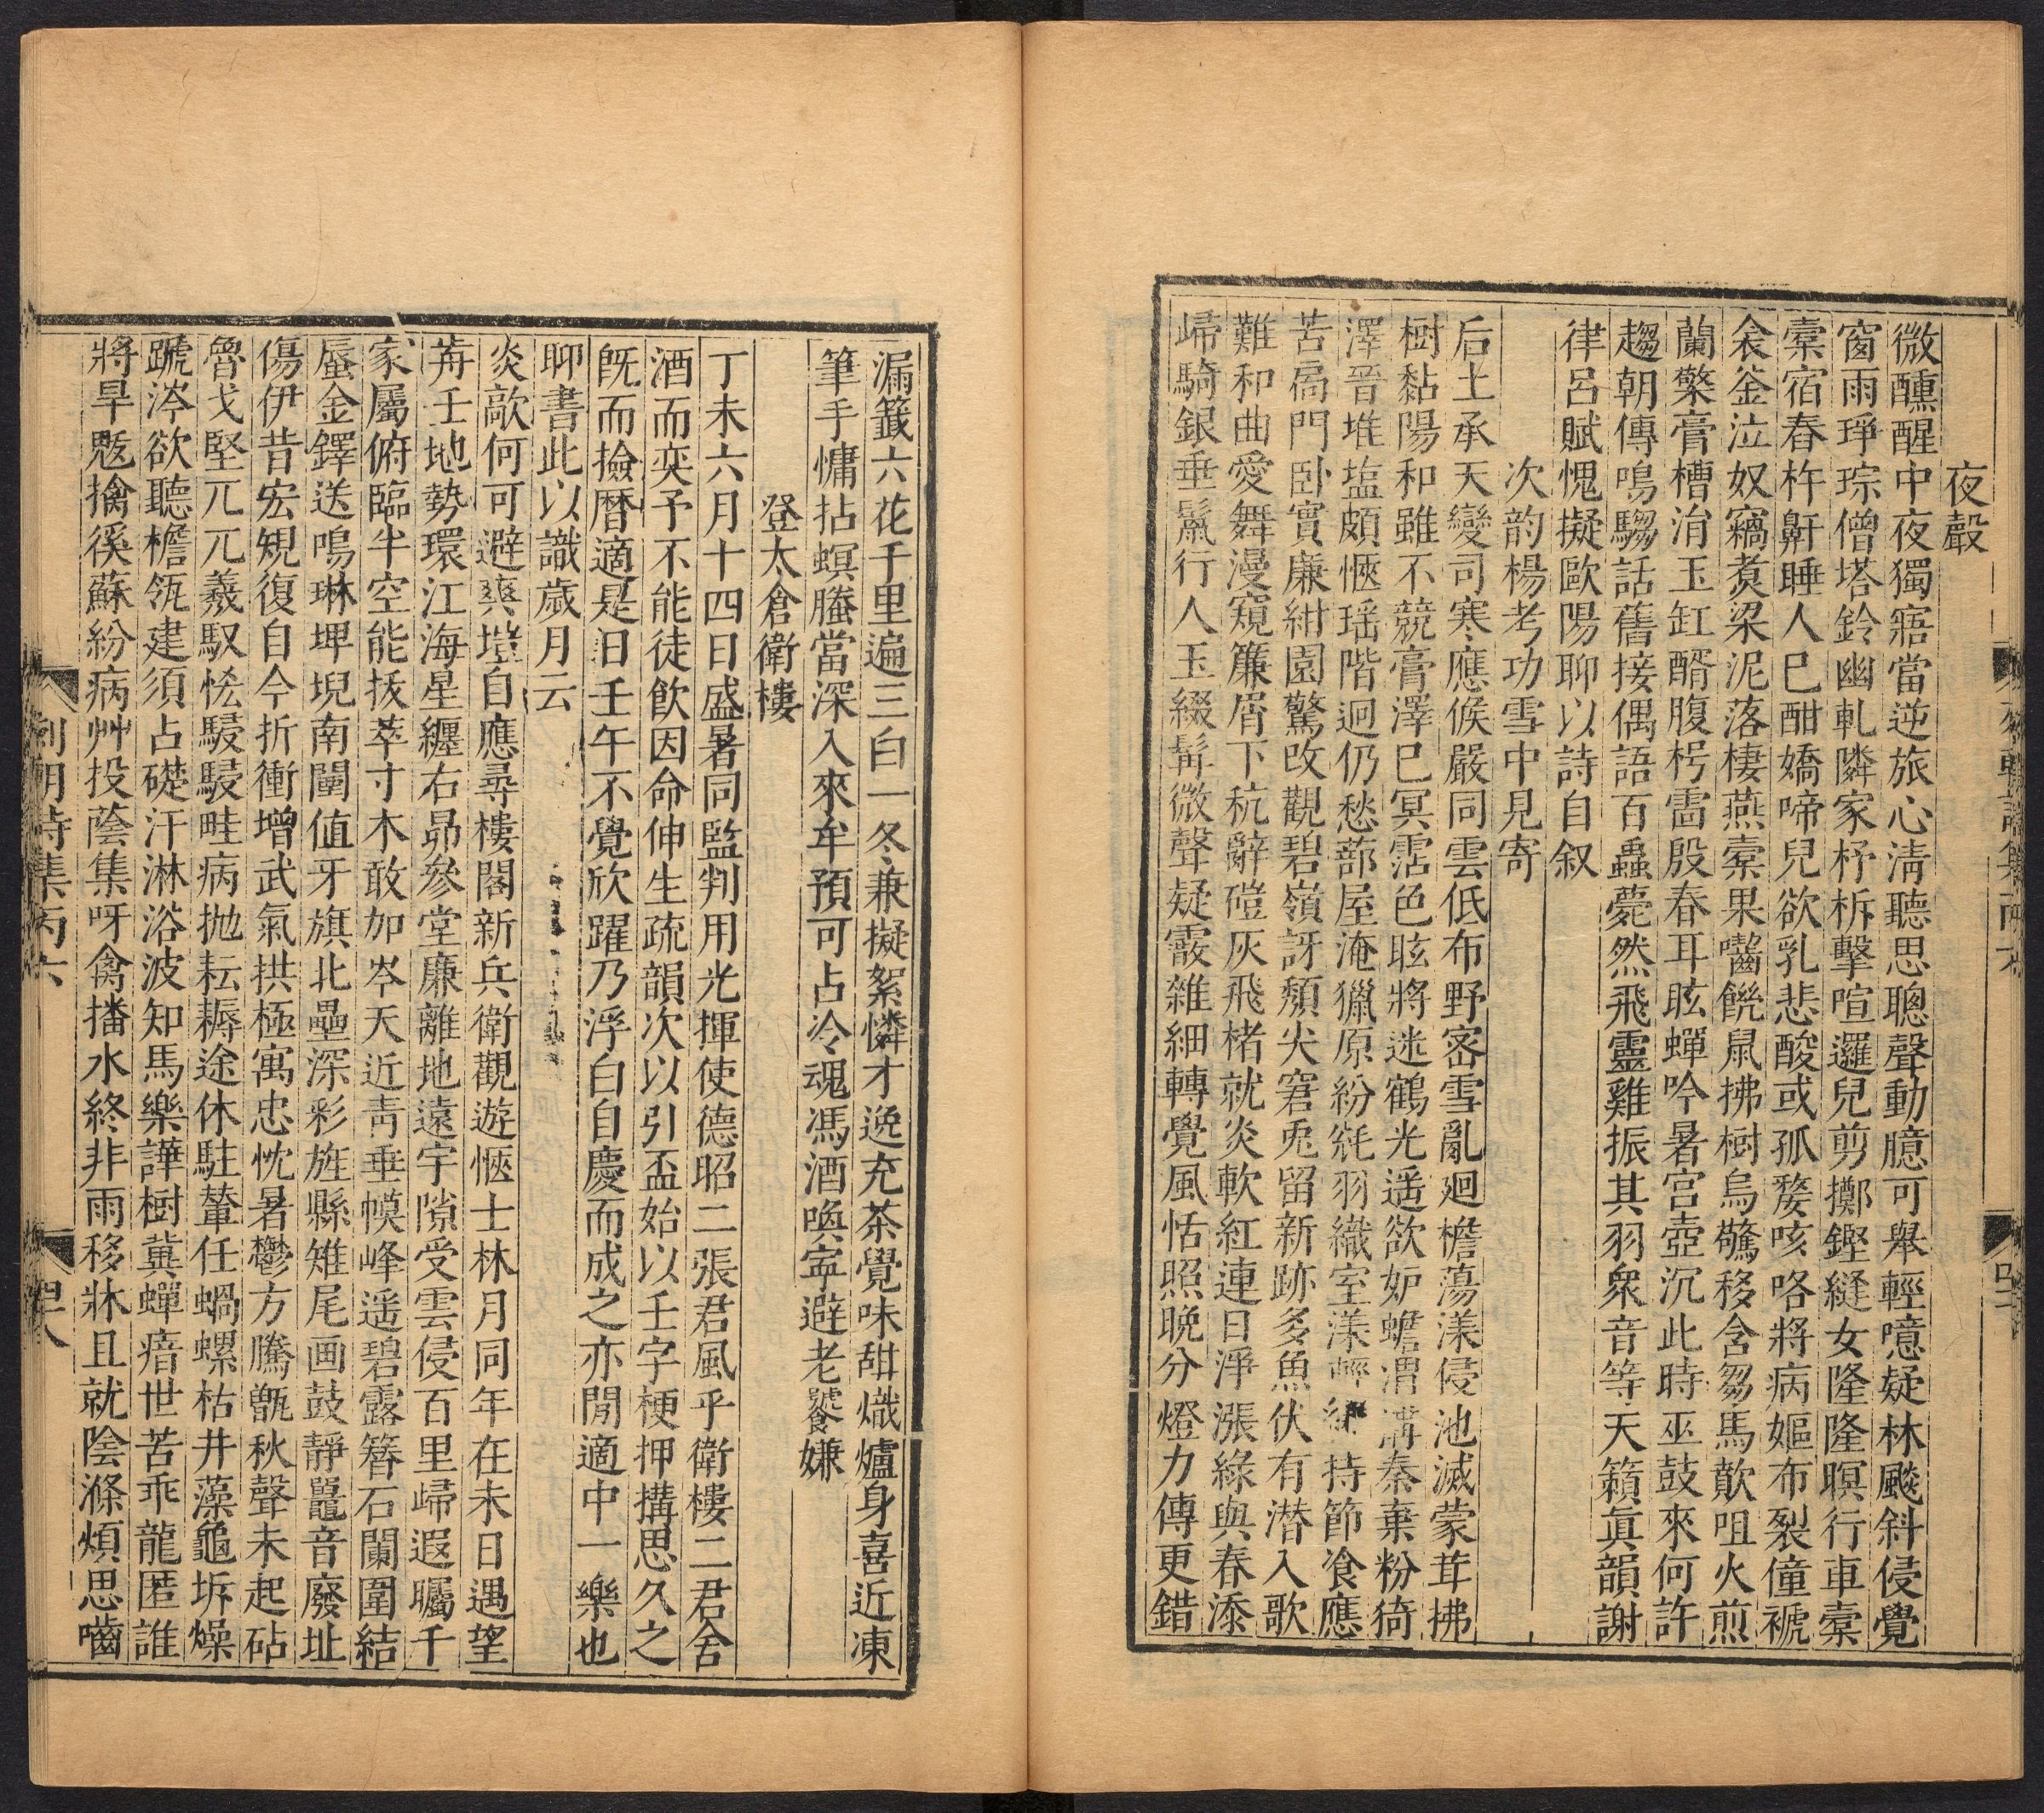 夜聲
微醺醒中夜獨寤當逆旅心淸聽思聰聲動臆可舉輕噫疑林颷斜侵覺
窗雨琤琮僧塔鈴幽軋隣家杼柝擊喧邏兒剪擲鏗縫女隆隆暝行車橐
橐宿舂杵鼾睡人巳酣嬌啼兒欲乳悲酸或孤嫠咳咯將病嫗布裂僮褫
衾釡泣奴竊煑梁泥落棲燕橐果嚙饑鼠拂樹烏驚移含芻馬歕咀火煎
蘭檠膏槽消玉缸醑腹枵雷殷春耳眩蟬吟暑宫壺沉此時巫鼓來何許
趨朝傳鳴騶話舊接偶語百蟲薨然飛靈雞振其羽衆音等天籟眞韻謝
律呂賦愧擬歐陽聊以詩自叙
次韵楊考功雪中見寄
后土承天變司寒應候嚴同雲低布野密雪亂迴檐蕩漾侵池滅蒙茸拂
樹黏陽和雖不競膏澤巳冥霑色眩將迷鶴光遥欲妒蟾渭 秦棄粉猗
澤晉堆塩頗愜瑶階迥仍愁蔀屋淹獵原紛毪羽織室漾輕 持節飡應
苦扄門卧實廉紺園驚改觀碧嶺訝頽尖窘兎留新跡多魚伏有潜入歌
難和曲愛舞漫窺簾屑下秔辭磑灰飛楮就炎軟紅連日淨漲綠與春添
歸騎銀垂鬣行人玉綴髯微聲疑霰雜細轉覺風恬照晩分燈力傳更錯
漏籤六花千里遍三白一冬兼擬絮憐才逸充茶覺味甜熾爐身喜近凍
筆手慵拈螟螣當深入來牟預可占冷魂馮酒喚寧避老饕嫌
登太倉衛樓
丁未六月十四日盛暑同監判用光揮使德昭二張君風乎衛樓二君舍
酒而奕予不能徒飲因命伸生疏韻次以引盃始以壬字梗押搆思久之
旣而撿曆適是日壬午不覺欣躍乃浮白自慶而成之亦閒適中一樂也
聊書此以識歲月云
炎歊何可避爽塏自應尋樓閣新兵衛觀遊愜士林月同年在未日遇望
苒壬地勢環江海星纒右昴參堂廉離地遠宇隙受雲侵百里歸遐矚千
家屬俯臨半空能拔萃寸木敢加岑天近靑垂幙峰遥碧露簪石闌圍結
蜃金鐸送鳴琳埤堄南闉値牙旗北壘深彩旌縣雉尾画鼓靜鼉音廢址
傷伊昔宏䂓復自今折衝增武氣拱極寓忠忱暑鬱方騰甑秋聲未起砧
魯戈堅兀兀羲馭恡駸駸畦病抛耘耨途休駐輦任蝸螺枯井藻龜坼燥
蹏涔欲聽檐瓴建須占礎汗淋浴波知馬樂譁樹冀蟬瘖世苦乖龍匿誰
將旱魃擒徯蘇紛病艸投蔭集呀禽播水終非雨移牀且就陰滌煩思嚙